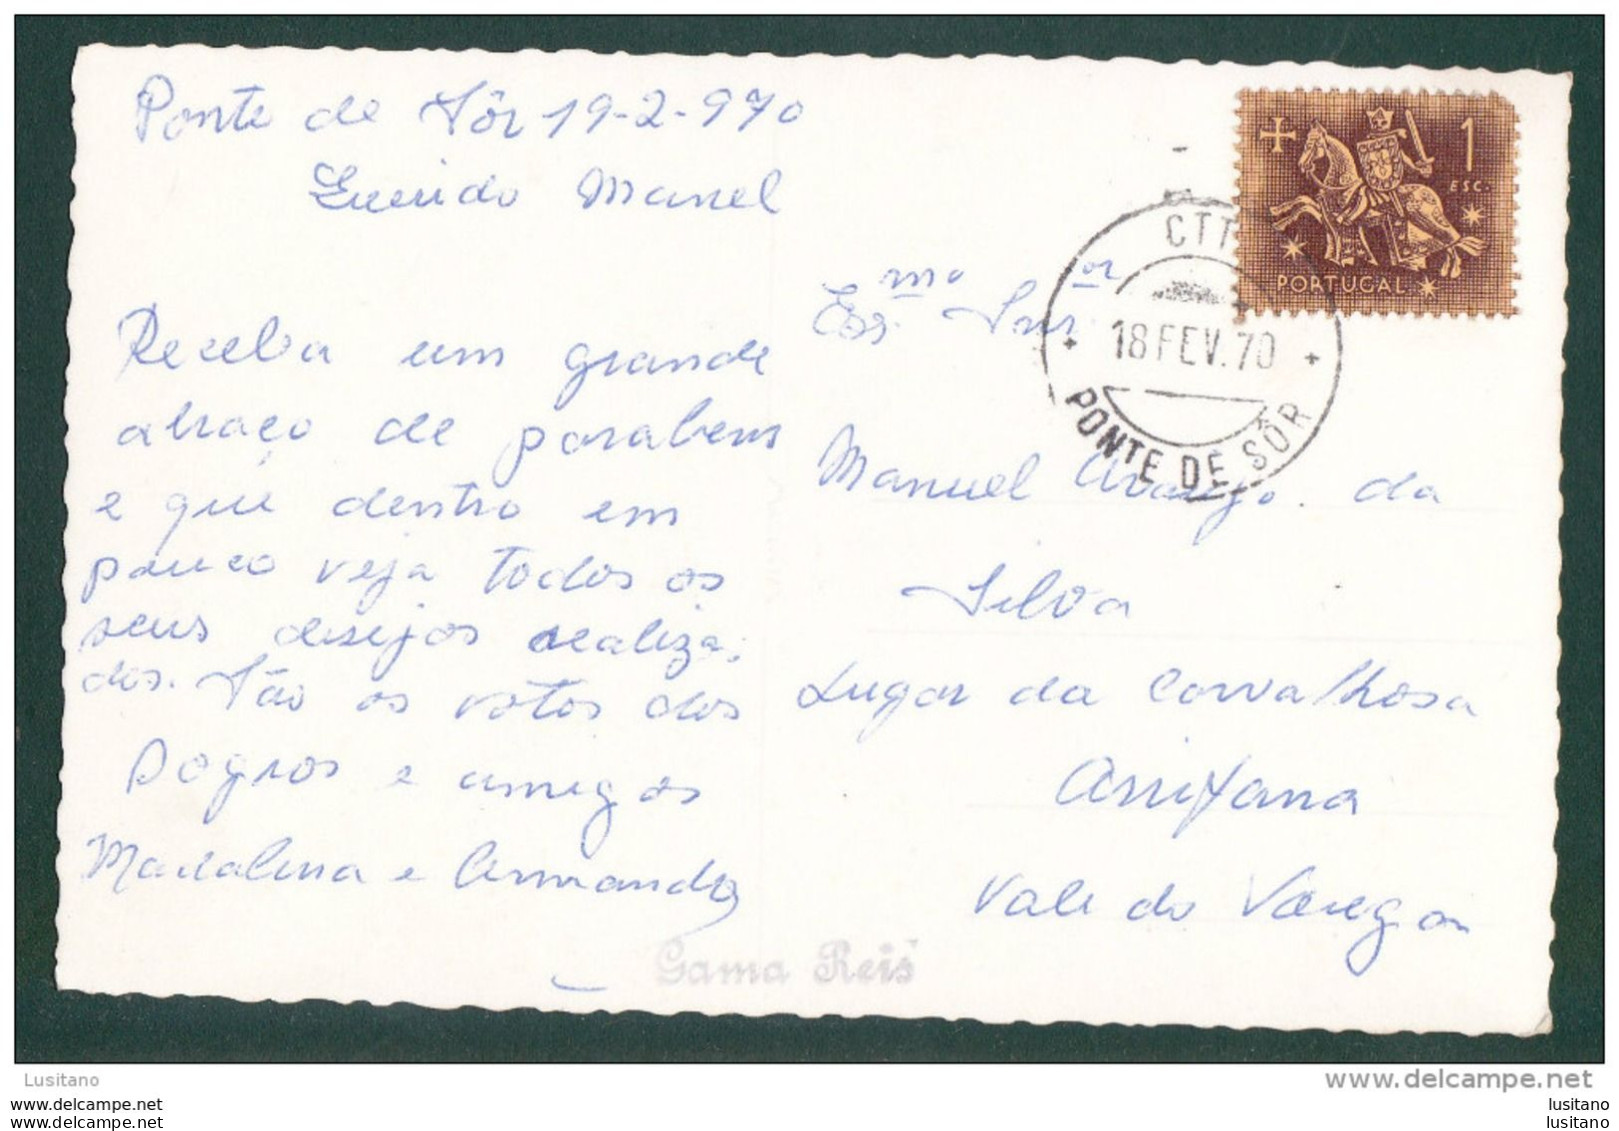 Ponte de Sôr 19-2-970
Querido Manel
Receba um grande
abraço de parabens
e que dentro em
pouco veja todos os
seus desejos realiza-
dos. São os votos dos
e amigos
Madalena e Armando
Gama Reis
1
ESC.
PORTUGAL
CTT
18 FEV. 70
PONTE DE SÔR
Exmo Snr
Manuel Araujo da
Silva
Lugar da Carvalhosa
Arrifana
Vale do
Lusitano
www.delcampe.net
lusitano
lusitano
lusitano
lusitano